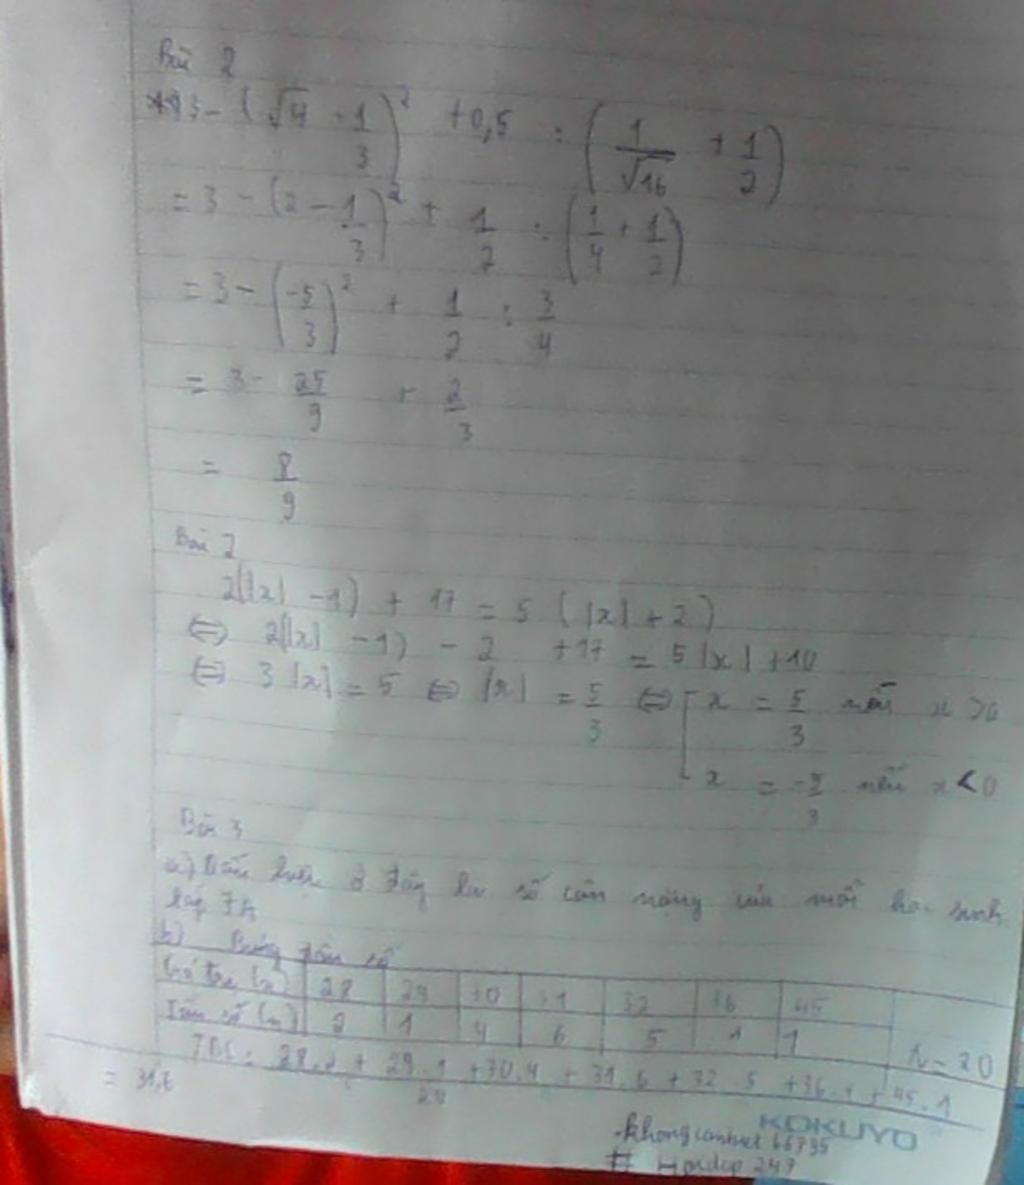 Bài 2
3 - (√4 - 1/3)² + 0,5 : (1/√16 + 1/2)
= 3 - (2 - 1/3)² + 1/2 : (1/4 + 1/2)
= 3 - (-5/3)² + 1/2 : 3/4
= 3 - 25/9 + 2/3
= 8/9
Bài 2
2(|x| - 1) + 17 = 5 (|x| + 2)
⇔ 2(|x| - 1) - 2 + 17 = 5|x| + 10
⇔ 3|x| = 5 ⇔ |x| = 5/3 ⇔ [ x = 5/3 nếu x >0
x = -5/3 nếu x < 0
Bài 3
a) Dấu hiệu ở đây là số cân nặng của mỗi học sinh
lớp 7A
b) Bảng tần số
Giá trị (x) 28 29 30 31 32 36 45
Tần số (n) 2 1 4 6 5 1 1 N = 20
TBC: 28.2 + 29.1 + 30.4 + 31.6 + 32.5 + 36.1 + 45.1
20
KOKUYO